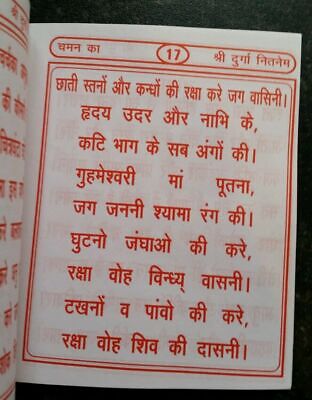 चमन का 17 श्री दुर्गा नितनेम
छाती स्तनों और कन्धों की रक्षा करे जग वासिनी।
हृदय उदर और नाभि के,
कटि भाग के सब अंगों की।
गुहमेश्वरी मां पूतना,
जग जननी श्यामा रंग की।
घुटनो जंघाओ की करे,
रक्षा वोह विन्ध्य् वासनी।
टखनों व पांवो की करे,
रक्षा वोह शिव की दासनी।